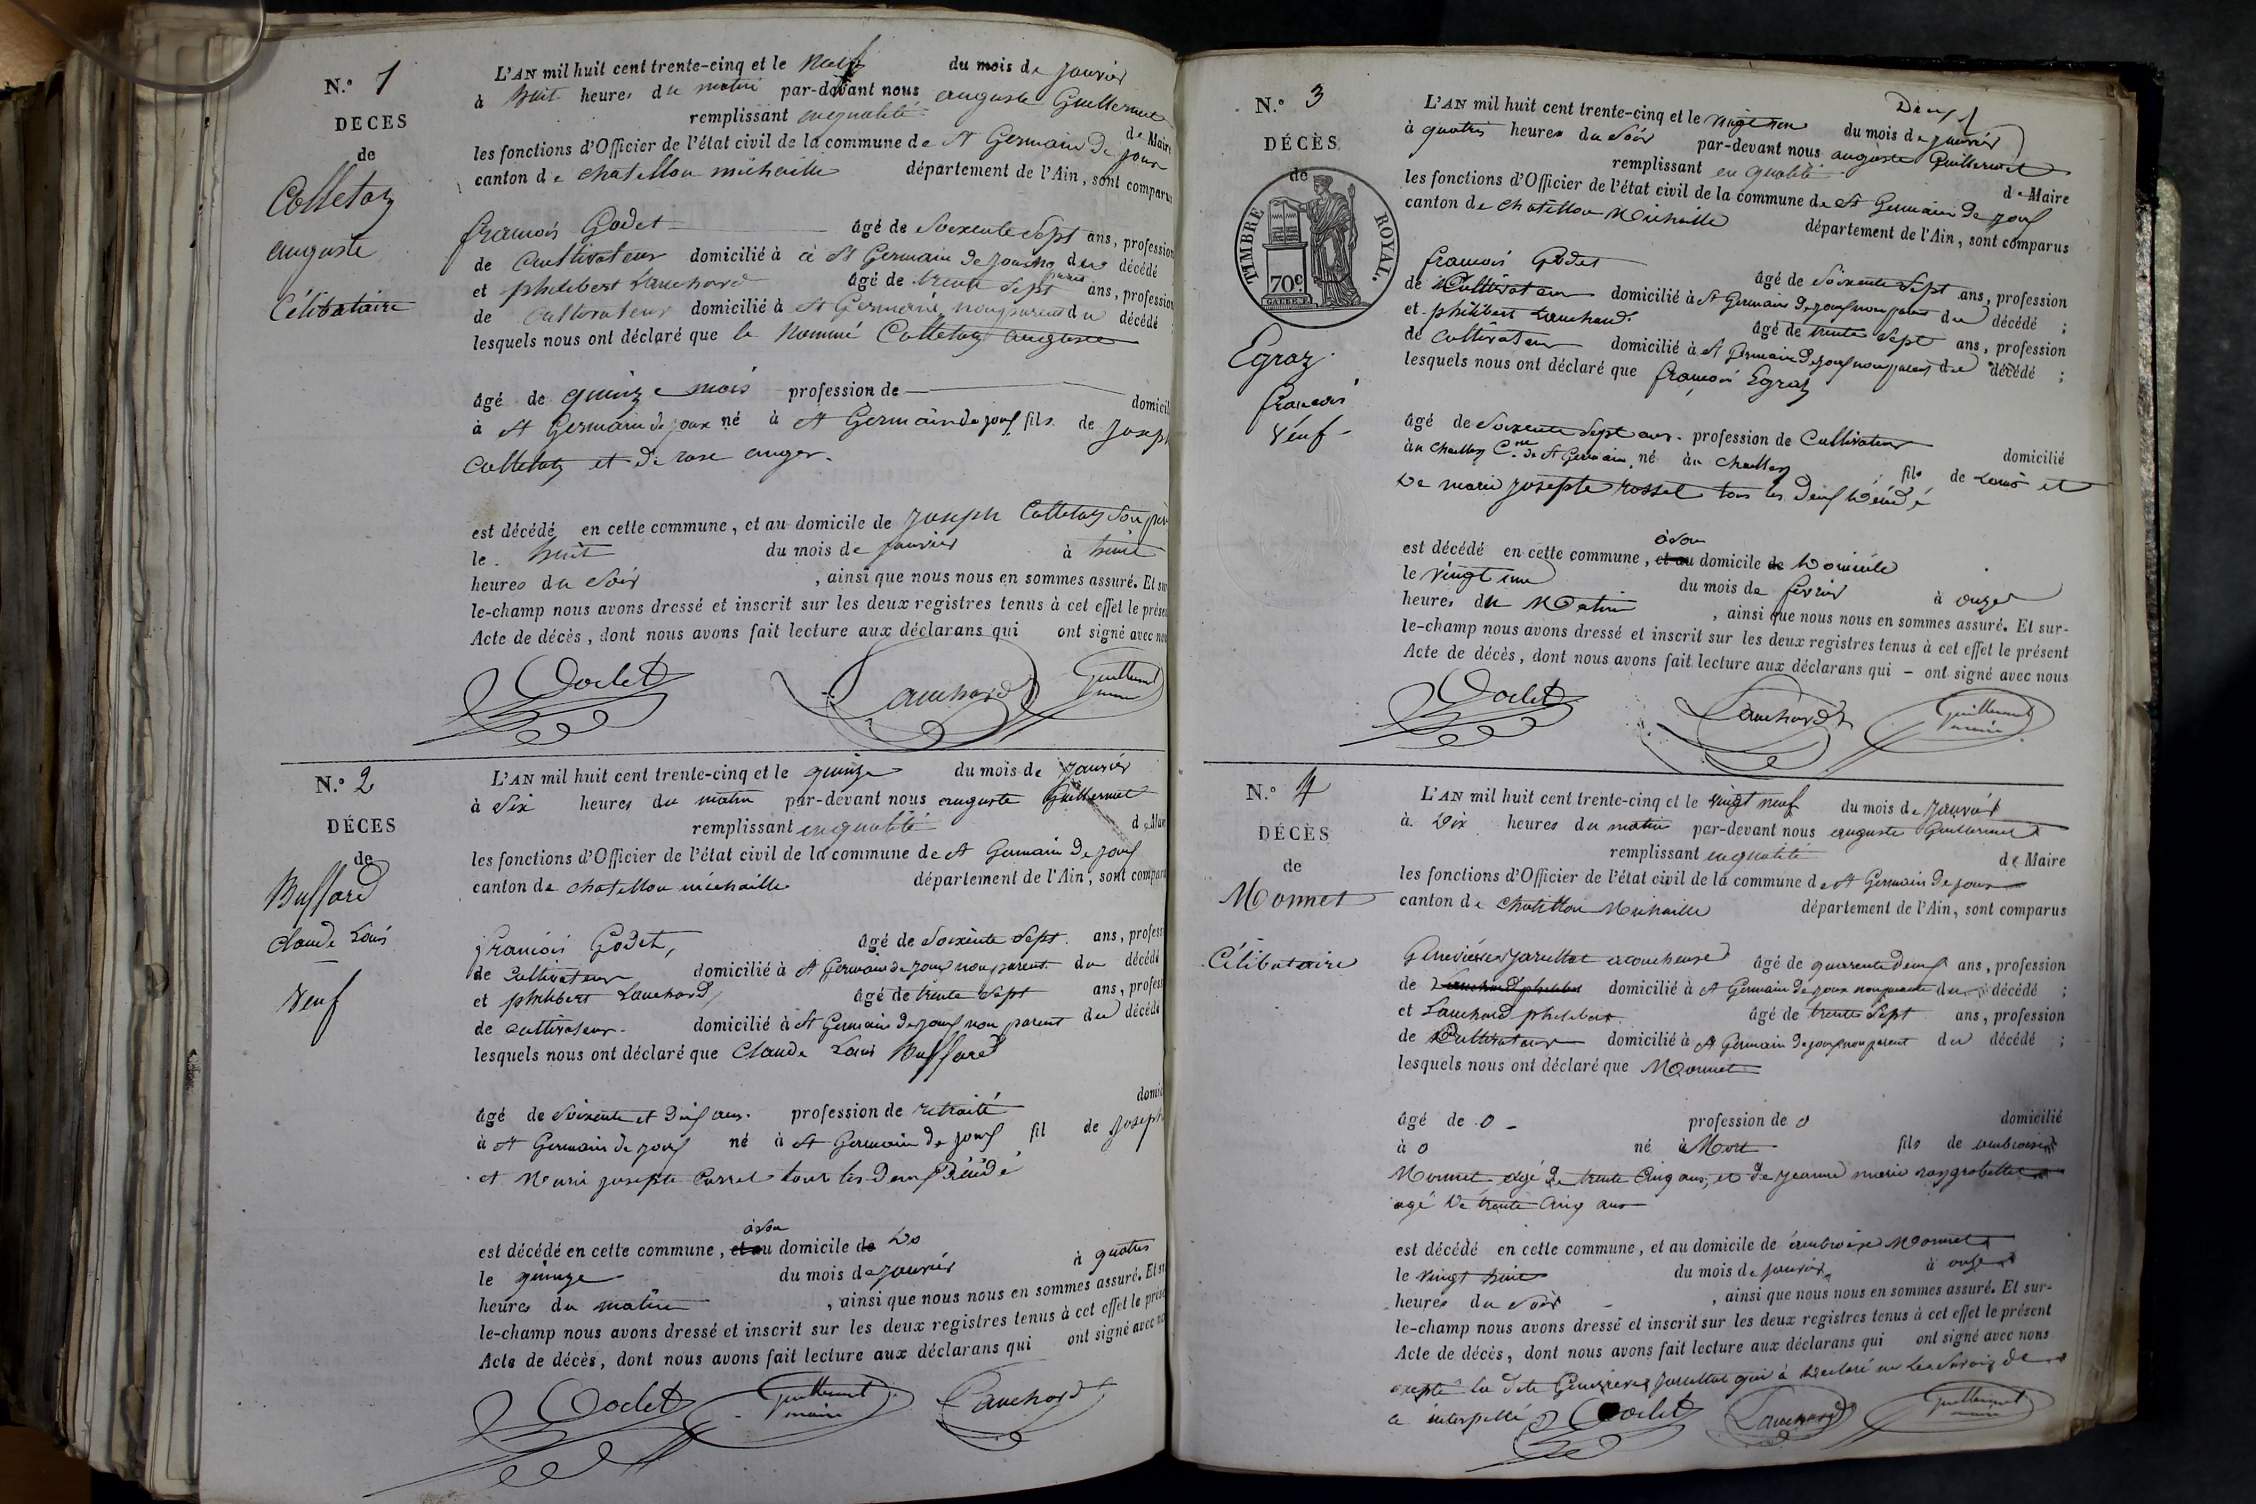 N.º 1
DECES
de
Colletaz
auguste
Célibataire
L'AN mil huit cent trente-cinq et le neuf du mois de janvier
à huit heures du matin par-devant nous auguste Guillermet
remplissant en qualité de Maire
les fonctions d'Officier de l'état civil de la commune de St Germain de joux
canton de chatillon michaille département de l'Ain, sont comparus
françois Godet âgé de Soixente Sept ans, profession
de Cultivateur domicilié à à St Germain de joux du décédé
et philibert Lanchard âgé de trente Sept ans, profession
de cultivateur domicilié à St Germain non parent du décédé
lesquels nous ont déclaré que le Nommé Colletaz auguste
âgé de quinze mois profession de domicil
à St Germain de joux né à St Germain de joux fils de Joseph
Colletaz et de rose auger.
est décédé en cette commune, et au domicile de Joseph Colletaz Son père
le huit du mois de janvier à huit
heures du Soir, ainsi que nous nous en sommes assuré. Et sur
le-champ nous avons dressé et inscrit sur les deux registres tenus à cet effet le présen
Acte de décès, dont nous avons fait lecture aux déclarans qui ont signé avec nou
Godet Lanchard Guillermet
maire
N.º 2
DÉCES
de
Buffard
Claude Louis
Veuf
L'AN mil huit cent trente-cinq et le quinze du mois de janvier
à Six heures du matin par-devant nous auguste Guillermet
remplissant en qualité de Mair
les fonctions d'Officier de l'état civil de la commune de St Germain de joux
canton de chatillon michaille département de l'Ain, sont compar
françois Godet, âgé de Soixente Sept ans, profess
de Cultivateur domicilié à St Germain de joux non parent du décédé
et philibert Lanchard âgé de trente Sept ans, profess
de cultivateur domicilié à St Germain de joux non parent du décédé
lesquels nous ont déclaré que Claude Louis Buffard
âgé de Soixente et Dix ans. profession de retraité domic
à St Germain de joux né à St Germain de joux fil de Joseph
et Marie josepte tous les Deux Décédé
à Son
est décédé en cette commune, et au domicile de Do
le quinze du mois de janvier à quatre
heures du matin, ainsi que nous nous en sommes assuré. Et su
le-champ nous avons dressé et inscrit sur les deux registres tenus à cet effet le prése
Acte de décès, dont nous avons fait lecture aux déclarans qui ont signé avec no
Godet Guillermet Lanchard
maire
N.º 3
DÉCÈS
de
TIMBRE ROYAL.
70c
Egraz
françois
Veuf
Deux
L'AN mil huit cent trente-cinq et le vingt un du mois de janvier
à quatre heures du Soir par-devant nous auguste Guillermet
remplissant en qualité de Maire
les fonctions d'Officier de l'état civil de la commune de St Germain de joux
canton de chatillon Michaille département de l'Ain, sont comparus
françois Godet âgé de Soixente Sept ans, profession
de Cultivateur domicilié à St Germain de joux non parent du décédé ;
et philibert Lanchard âgé de trente Sept ans, profession
de Cultivateur domicilié à St Germain de joux non parent du décédé ;
lesquels nous ont déclaré que françois Egraz
âgé de Soixente Sept ans. profession de Cultivateur domicilié
au Cne de St Germain, né au fils de Louis et
De marie josepte rossel tous les Deux Décédé
à Son
est décédé en cette commune, et au domicile de Domicile
le vingt un du mois de février à onze
heures du Matin, ainsi que nous nous en sommes assuré. Et sur-
le-champ nous avons dressé et inscrit sur les deux registres tenus à cet effet le présent
Acte de décès, dont nous avons fait lecture aux déclarans qui – ont signé avec nous
Godet Lanchard Guillermet
maire
N.º 4
DÉCÈS
de
Monnet
Célibataire
L'AN mil huit cent trente-cinq et le vingt neuf du mois de janvier
à Dix heures du matin par-devant nous auguste Guillermet
remplissant en qualité de Maire
les fonctions d'Officier de l'état civil de la commune de St Germain de joux
canton de chatillon Michaille département de l'Ain, sont comparus
Geneviève acoucheuse âgé de quarente deux ans, profession
de domicilié à St Germain de joux non parente du décédé ;
et Lanchard philibert âgé de trente Sept ans, profession
de Cultivateur domicilié à St Germain de joux non parent du décédé ;
lesquels nous ont déclaré que Monnet
âgé de 0 profession de 0 domicilié
à 0 né à Mort fils de ambroise
Monnet, agé De trente Cinq ans, et de jeanne marie
agé De trente Cinq ans
est décédé en cette commune, et au domicile de ambroise Monnet
le vingt huit du mois de janvier à onze
heures du Soir, ainsi que nous nous en sommes assuré. Et sur-
le-champ nous avons dressé et inscrit sur les deux registres tenus à cet effet le présent
Acte de décès, dont nous avons fait lecture aux déclarans qui ont signé avec nous
excepté la dite Geneviève qui à Déclaré ne Le Savoir de
ce interpellé Godet Lanchard Guillermet
maire